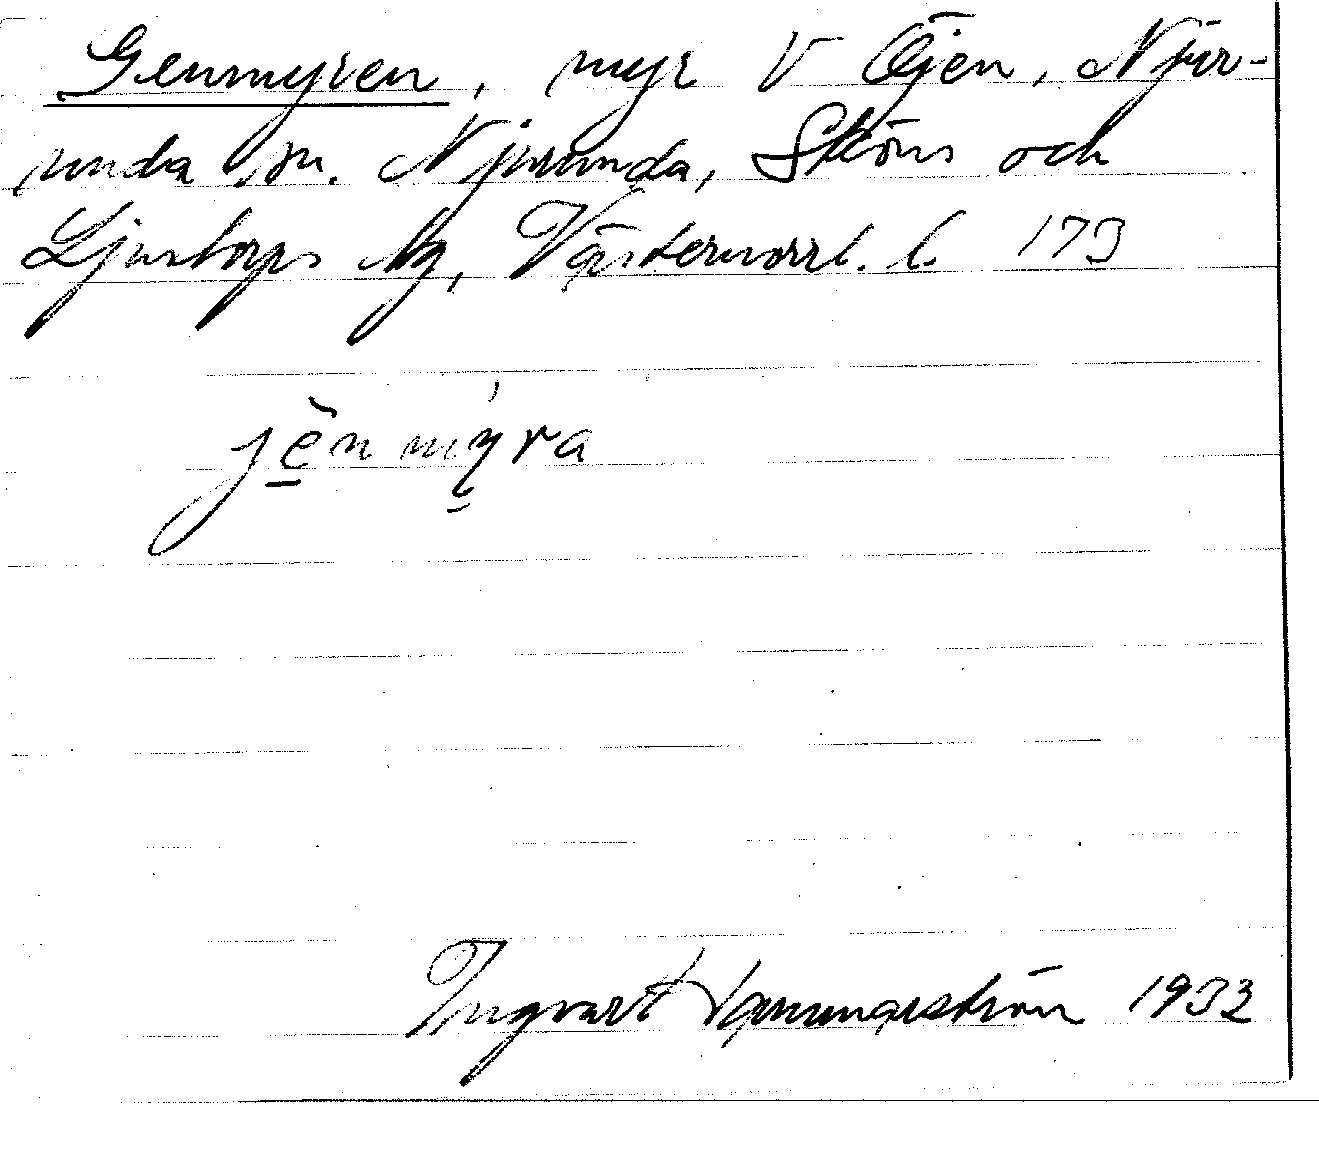 Genmyren, myr V Öjen, Njur-
unda sn. Njurunda, Sköns och
Ljustorps tg, Västernorrl. l. 173
jēn mỵra
Ingvart Hammarström 1933